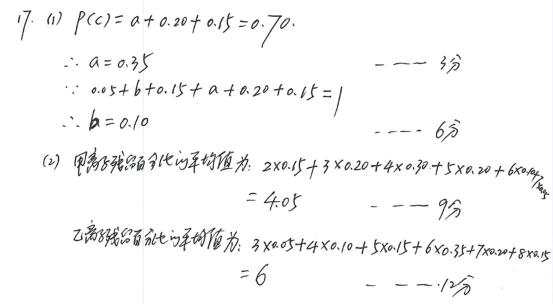 17. (1) P(C) = a + 0.20 + 0.15 = 0.70.
∴ a = 0.35 --- 3分
∵ 0.05 + b + 0.15 + a + 0.20 + 0.15 = 1
∴ b = 0.10 ---- 6分
(2) 甲离子残留百分比的平均值为: 2×0.15 + 3×0.20 + 4×0.30 + 5×0.20 + 6×0.10 + 7×0.05
= 4.05 --- 9分
乙离子残留百分比的平均值为: 3×0.05 + 4×0.10 + 5×0.15 + 6×0.35 + 7×0.20 + 8×0.15
= 6 --- 12分